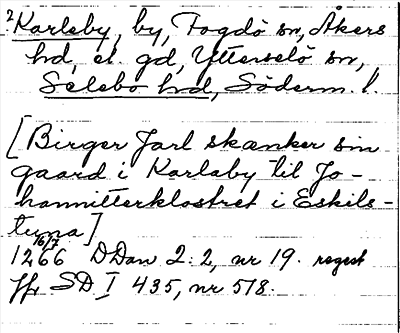 ?Karleby, by, Fogdö sn, Åkers
hd, el. gd, Ytterselö sn,
Selebo hd, Söderm. l.
[Birger Jarl skænker sin
gaard i Karlaby til Jo-
hannitterklostret i Eskils-
tuna]
1266 16/7 DDan 2:2, nr 19. regest
jfr SD I 435, nr 518.